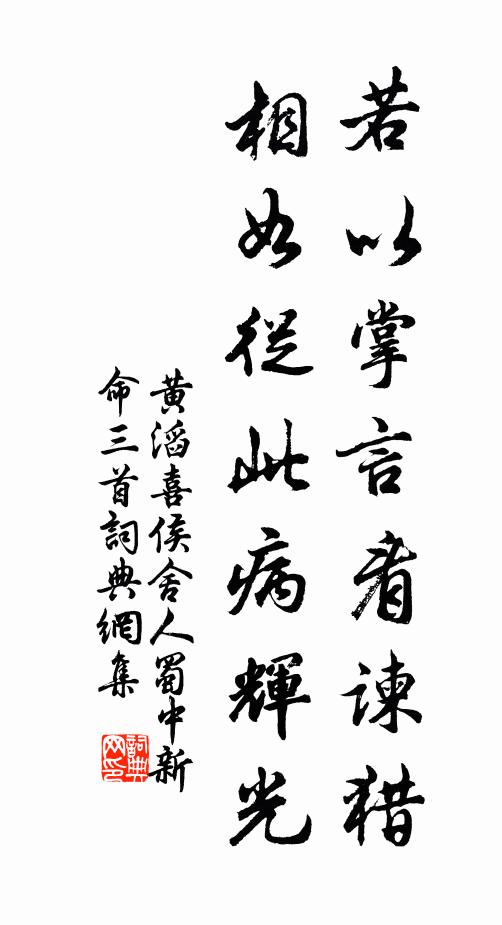 若以掌言看諫猎
相如從此病輝光
黄滔喜侯舍人蜀中新
命三首詞典網集
詞典
网印